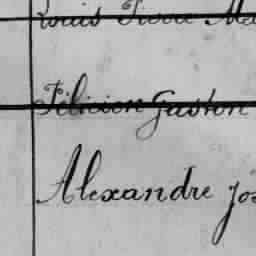 Louis Pierre Ma
Félicien Gaston
Alexandre Jos